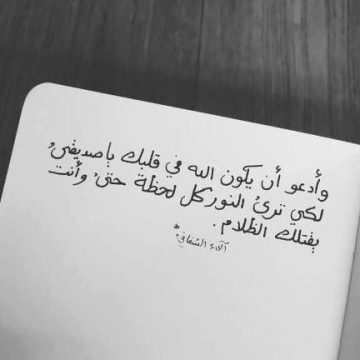 وأدعو أن يكون الله في قلبك ياصديقي
لكي ترى النور كل لحظة حتى وأنت
يقتلك الظلام.
آلاء الشفاقي